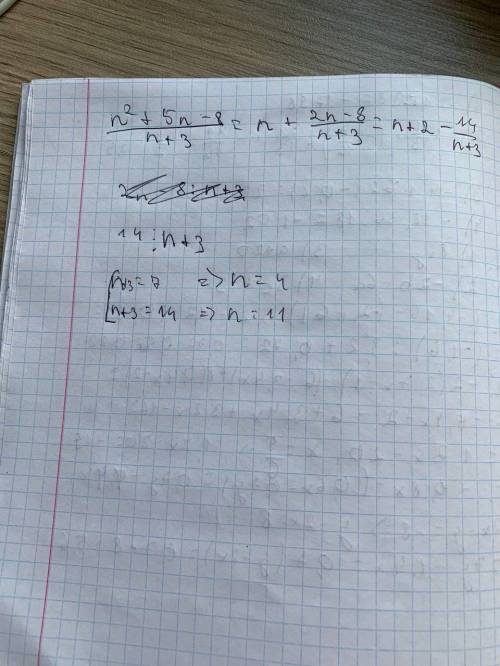 n² + 5n - 8 / n + 3 = n + 2n - 8 / n + 3 = n + 2 - 14 / n + 3
14 ⋮ n + 3
[ n+3 = 7 => n = 4
n+3 = 14 => n = 11